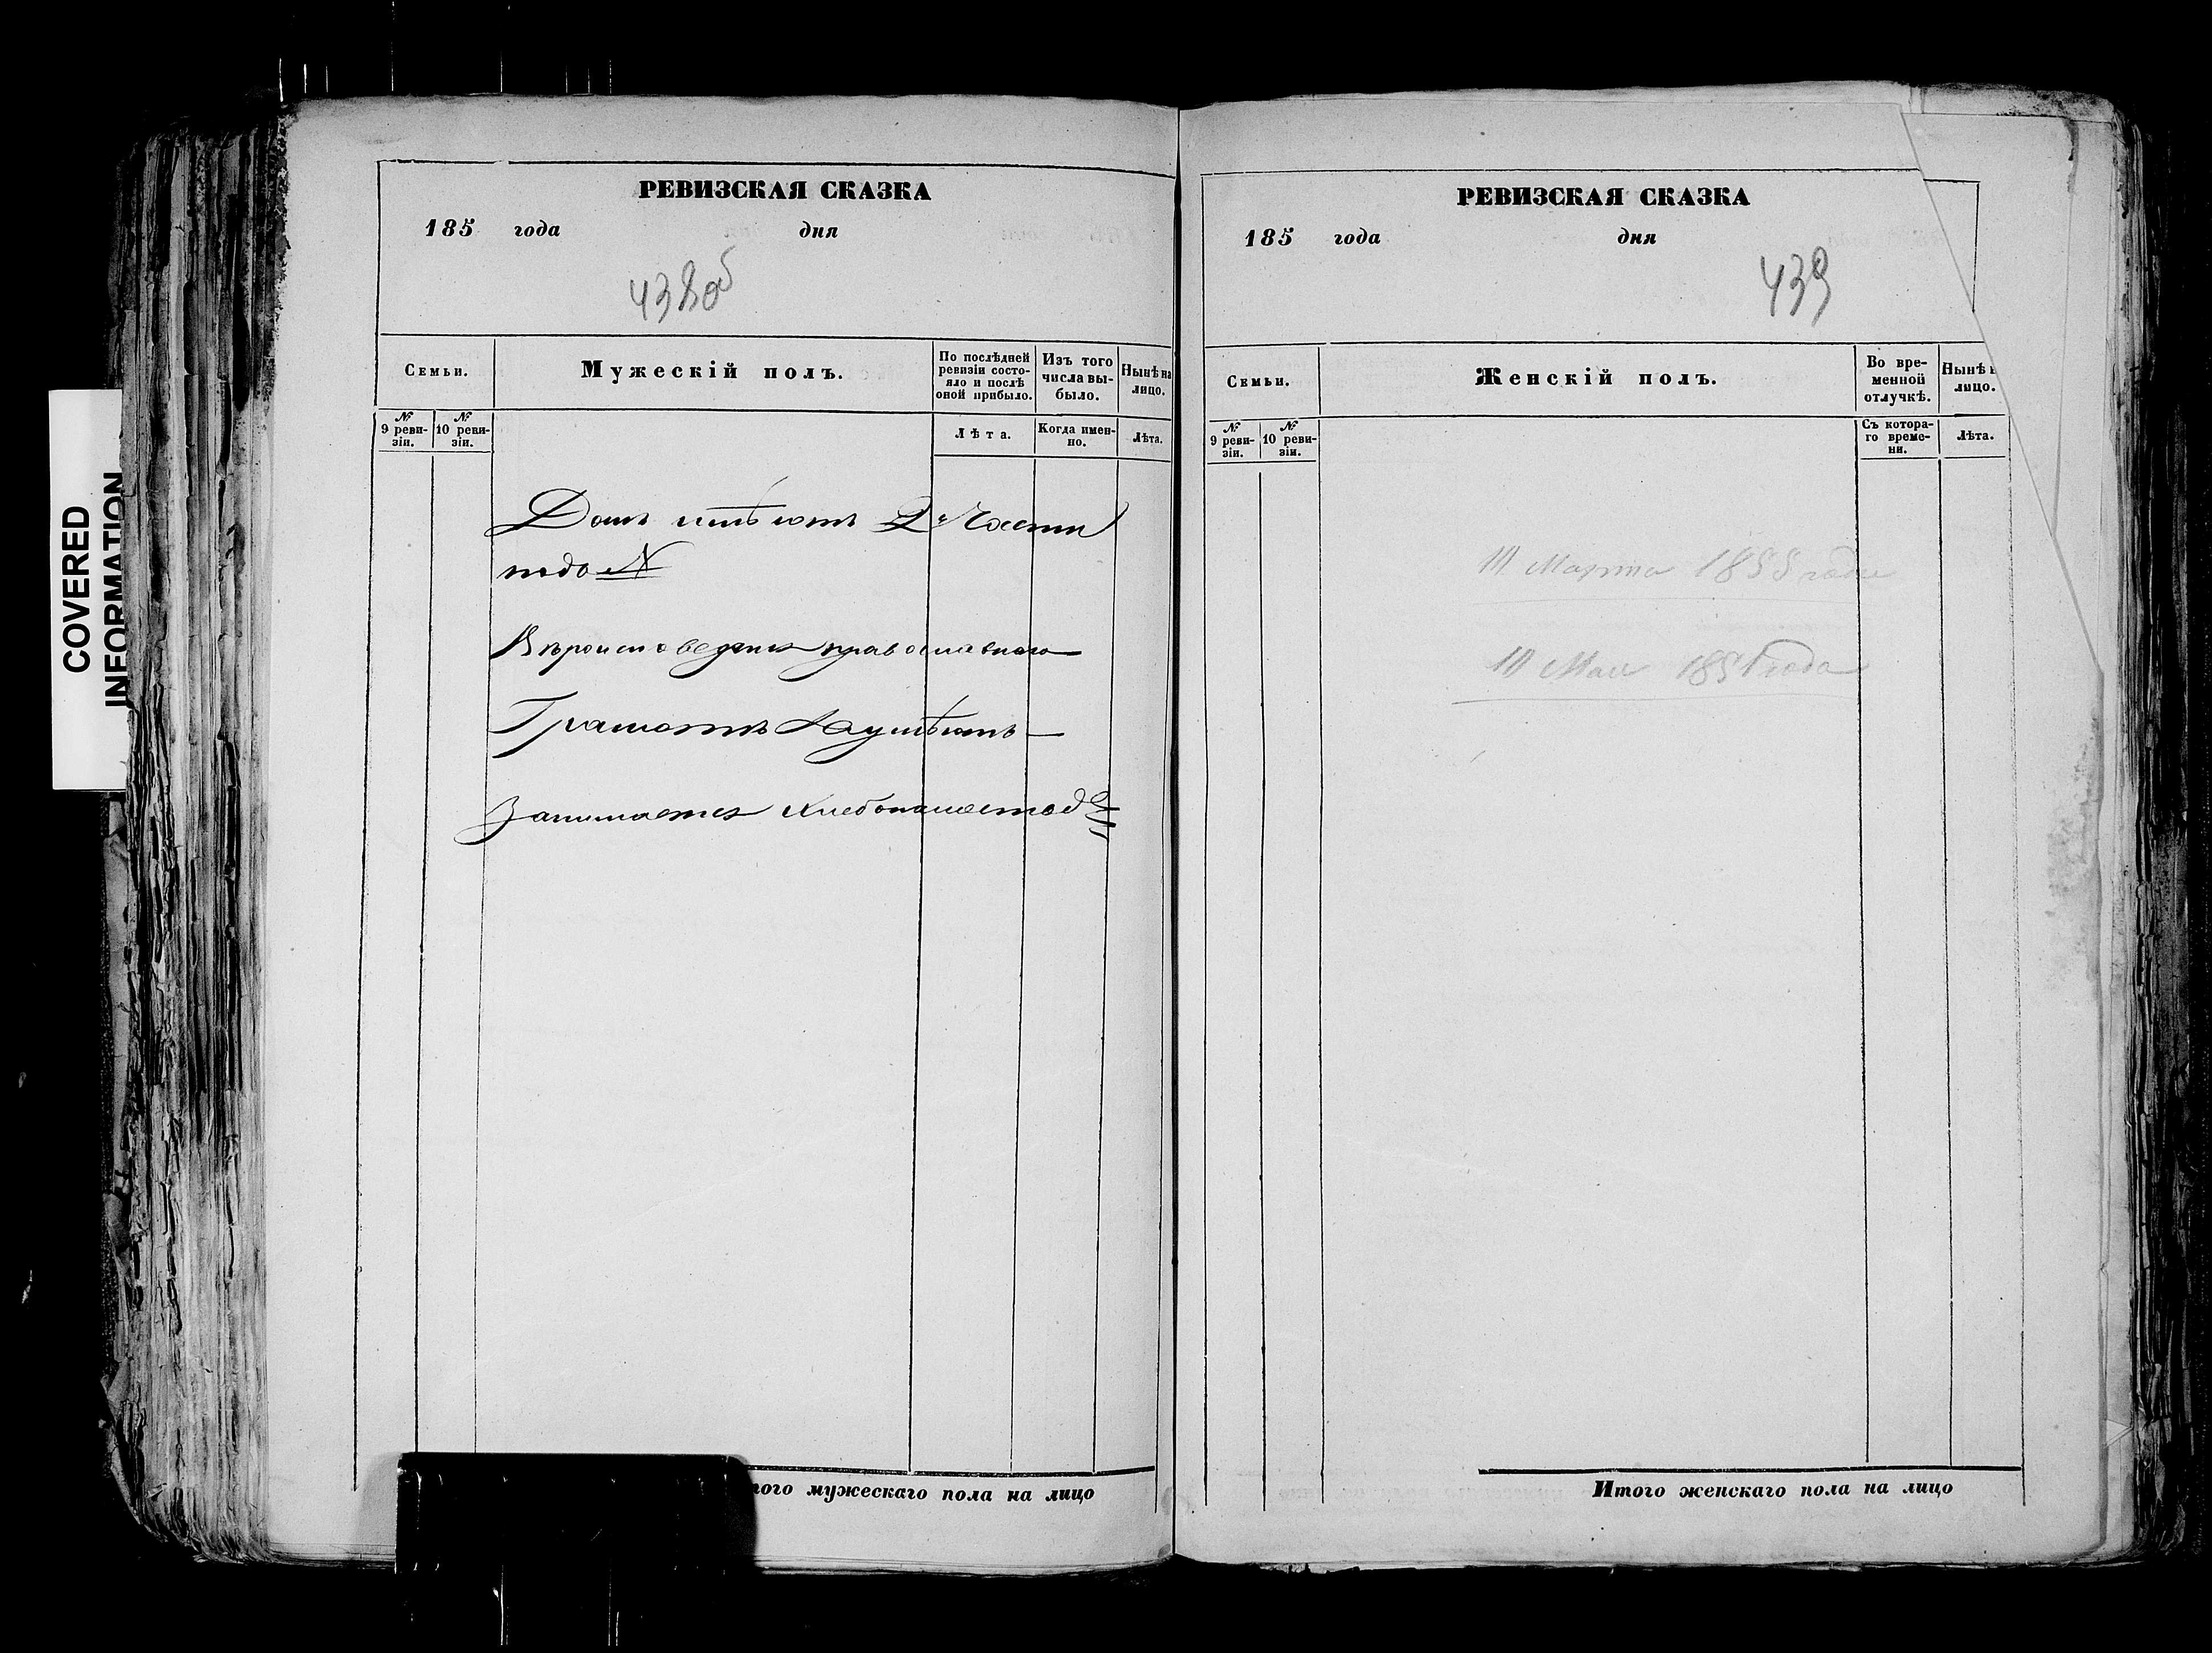 COVERED
INFORMATION
РЕВИЗСКАЯ СКАЗКА
185 года дня
438об
Семьи.
Мужескій полъ.
По послѣдней ревизіи состояло и послѣ оной прибыло.
Изъ того числа выбыло.
Нынѣ на лицо.
№ 9 ревизіи.
№ 10 ревизіи.
Лѣта.
Когда именно.
Лѣта.
Домъ имѣютъ 2й Части
подъ №
Вѣроисповеданія православнаго
Грамотѣ неумѣютъ
Занимается хлебопашество
того мужескаго пола на лицо
РЕВИЗСКАЯ СКАЗКА
185 года дня
439
Семьи.
Женскій полъ.
Во временной отлучкѣ.
Нынѣ
лицо.
№ 9 ревизіи.
№ 10 ревизіи.
Съ котораго времени.
Лѣта.
Марта года
Мая года
Итого женскаго пола на лицо